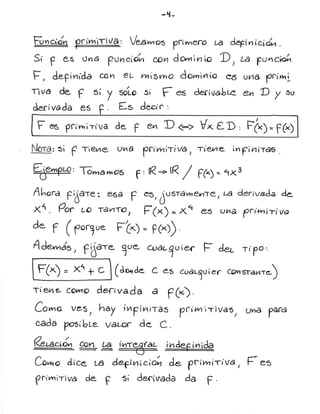 -4-
Función primitiva: Veamos primero la definición.
Si f es una función con dominio D, la función
F, definida con el mismo dominio es una primi
tiva de f si y solo si F es derivable en D y su
derivada es f. Es decir:
F es primitiva de f en D <=> ∀x ∈ D: F'(x) = f(x)
Nota: si f tiene una primitiva, tiene infinitas.
Ejemplo: Tomamos f: IR → IR / f(x) = 4x³
Ahora fijate: esa f es, justamente, la derivada de
x⁴. Por lo tanto, F(x) = x⁴ es una primitiva
de f (porque F'(x) = f(x)).
Además, fijate que cualquier F del tipo:
F(x) = x⁴ + c (donde c es cualquier constante)
tiene como derivada a f(x).
Como ves, hay infinitas primitivas, una para
cada posible valor de c.
Relación con la integral indefinida
Como dice la definición de primitiva, F es
primitiva de f si derivada da f.